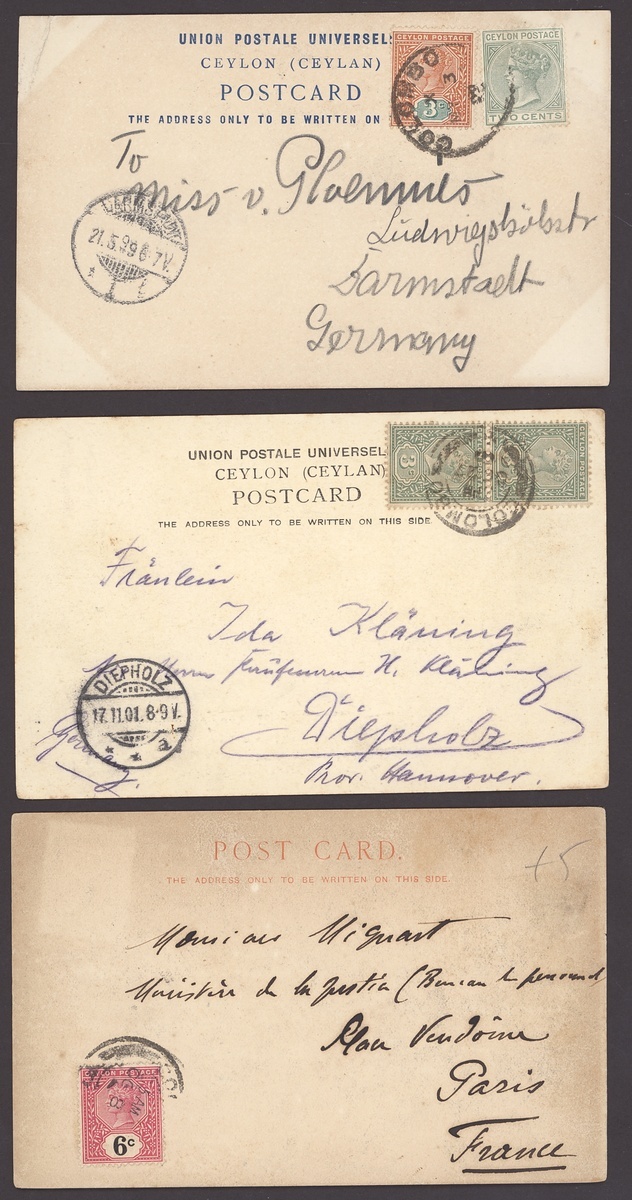 UNION POSTALE UNIVERSEL
CEYLON (CEYLAN)
POSTCARD
THE ADDRESS ONLY TO BE WRITTEN ON
CEYLON POSTAGE
3c
CEYLON POSTAGE
TWO CENTS
COLOMBO
To
Miss v. Ploennies
Ludwigshöhstr
Darmstadt
Germany
DARMSTADT
21.5.99 6-7V.
UNION POSTALE UNIVERSEL
CEYLON (CEYLAN)
POSTCARD
THE ADDRESS ONLY TO BE WRITTEN ON THIS SIDE.
3c
CEYLON POSTAGE
COLOMBO
Fräulein
Ida Kläning
Herrn Kaufmann H. Kläning
Diepholz
Prov. Hannover.
Germany.
DIEPHOLZ
17.11.01. 8-9 V.
POST CARD.
THE ADDRESS ONLY TO BE WRITTEN ON THIS SIDE.
+5
Monsieur Mignart
Ministère de la Justice (Bureau du personnel
Place Vendôme
Paris
France
CEYLON POSTAGE
6c